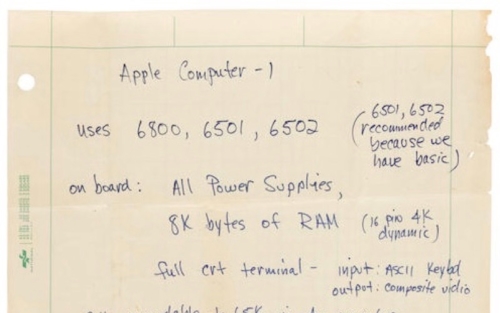 Apple Computer -1
uses 6800, 6501, 6502
(6501, 6502
recommended
because we
have basic)
on board: All Power Supplies,
8K bytes of RAM (16 pin 4K
dynamic)
full crt terminal - input: ASCII Keybd
output: composite vidio